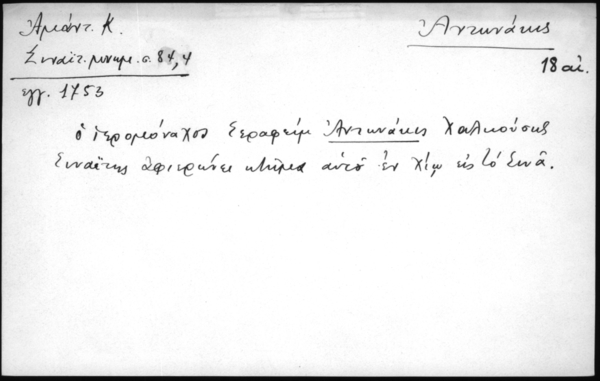 Ἀμάντ. Κ.
Σιναϊτ. μνημ. σ. 84,4
εγγ. 1753
Ἀντωνάκης
18 αἰ.
ὁ ἱερομόναχος Σεραφεὶμ Ἀντωνάκης Χαλκούσης
Σιναΐτης ἀφιερώνει κτῆμα αὐτοῦ ἐν Χίῳ εἰς τὸ Σινᾶ.